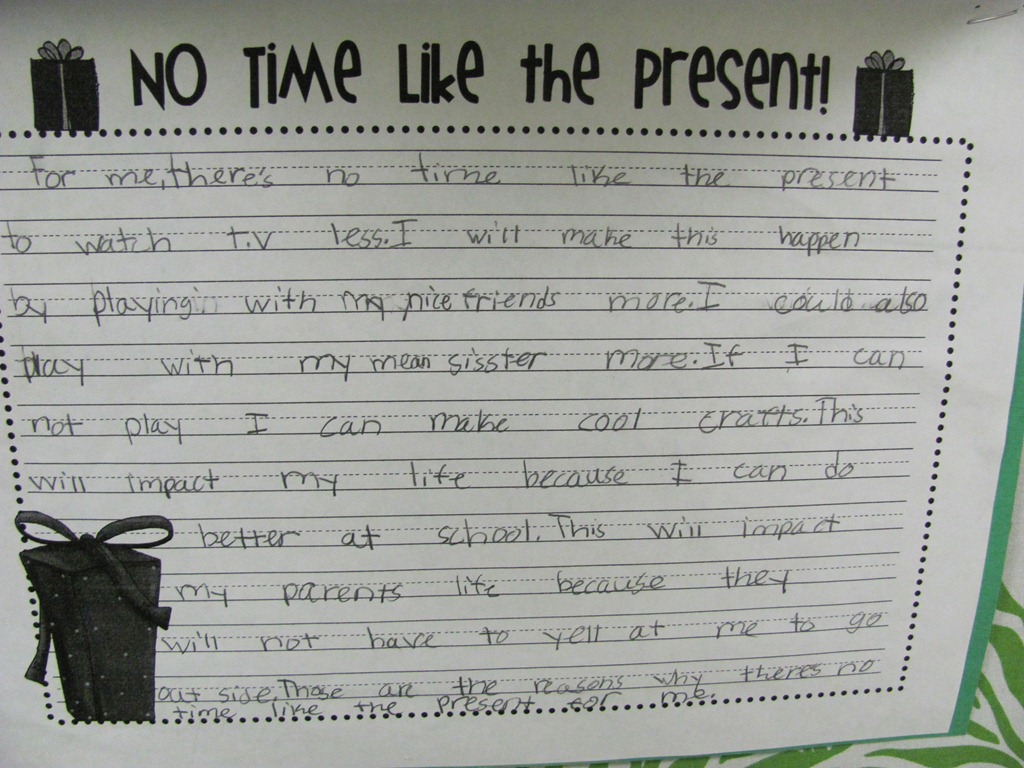 NO TIME LIKE THE PRESENT!
For me, there's no time like the present
to watch t.v less. I will make this happen
by playing with my nice friends more. I could also
play with my mean sisster more. If I can
not play I can make cool crafts. This
will impact my life because I can do
better at school. This will impact
my parents life because they
will not have to yell at me to go
out side. Those are the reasons why theres no
time like the present for me.